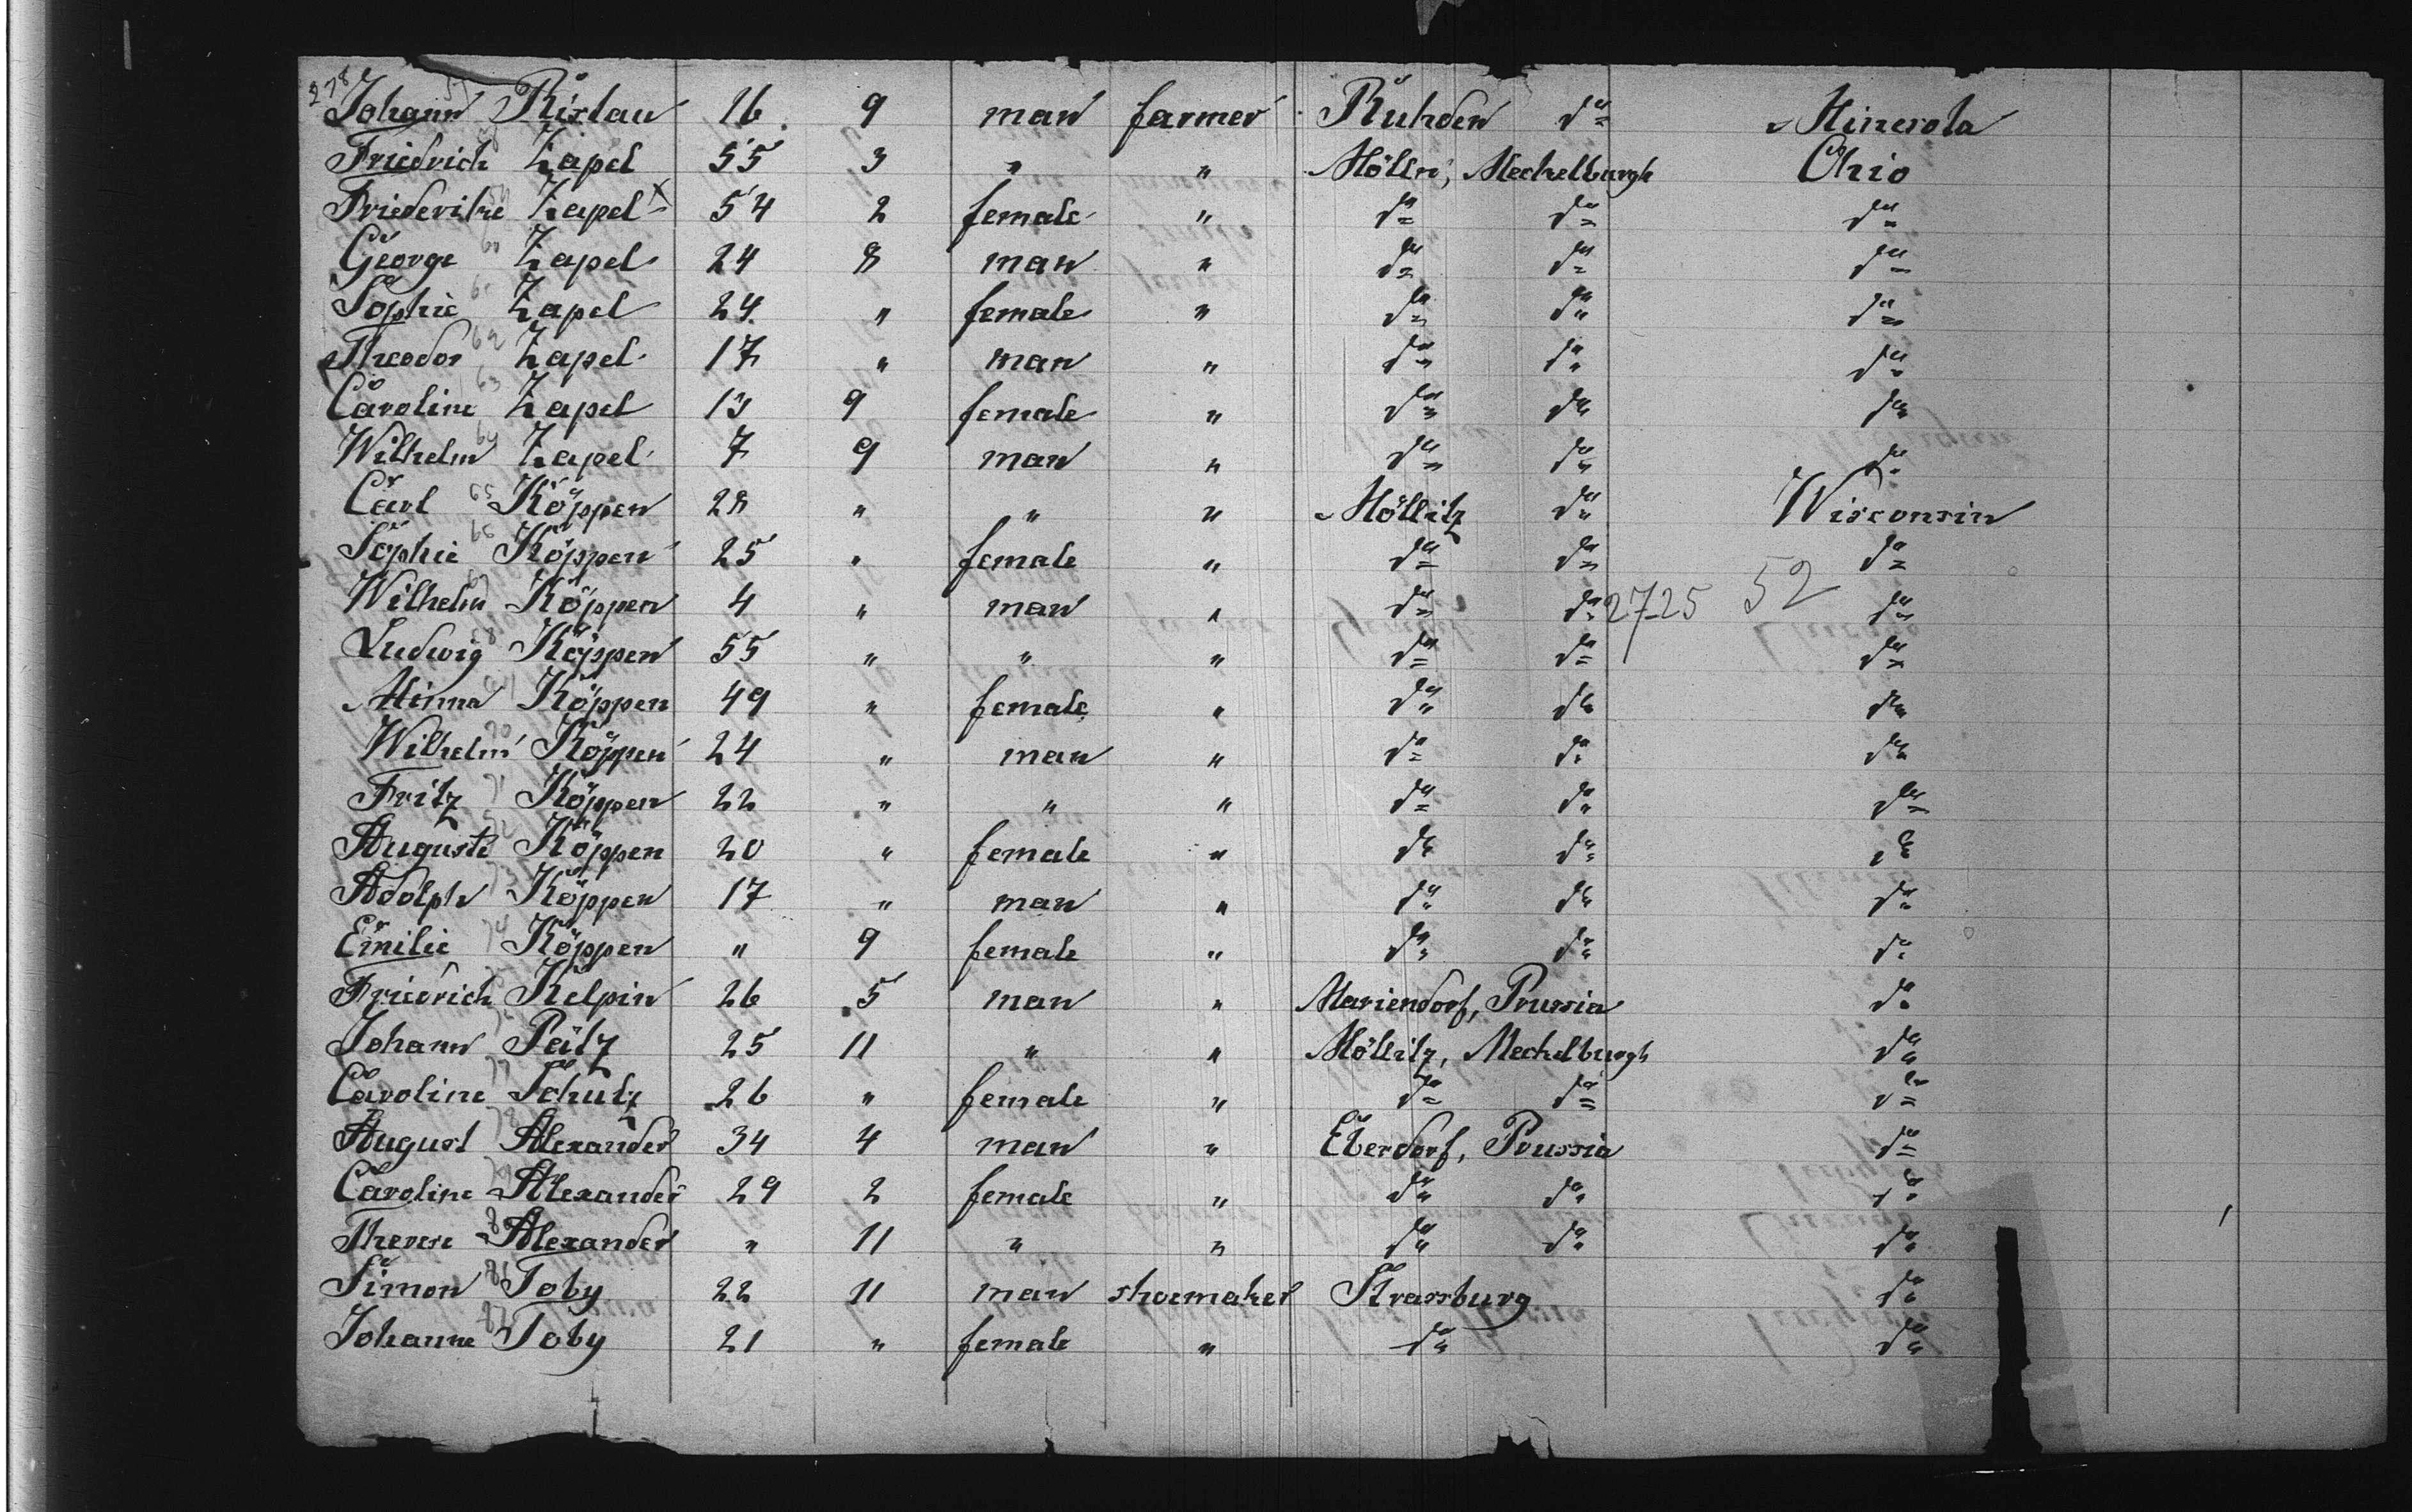 278 57 Johann Ristau 16 9 man farmer Ruhden do Minesota
58 Friedrich Zapel 55 3 " " Mölln, Mechelburgh Ohio
59 Friederike Zapel x 54 2 female " do do do
60 George Zapel 24 8 man " do do do
61 Sophie Zapel 24 " female " do do do
62 Theodor Zapel 17 " man " do do do
63 Caroline Zapel 13 9 female " do do do
64 Wilhelm Zapel 7 9 man " do do do
65 Carl Köppen 28 " " " Möllitz do Wisconsin
66 Sophie Köppen 25 " female " do do do
67 Wilhelm Köppen 4 " man " do do 2725 52 do
68 Ludwig Köppen 55 " " " do do do
69 Minna Köppen 49 " female " do do do
70 Wilhelm Köppen 24 " man " do do do
71 Fritz Köppen 22 " " " do do do
72 Auguste Köppen 20 " female " do do do
73 Adolph Köppen 17 " man " do do do
74 Emilie Köppen " 9 female " do do do
Friedrich Kelpin 26 5 man " Mariendorf, Prussia do
Johann Peitz 25 11 " " Möllitz, Mechelburgh do
77 Caroline Schutz 26 " female " do do do
78 August Alexander 34 4 man " Eberdorf, Prussia do
79 Caroline Alexander 29 2 female " do do do
80 Therese Alexander " 11 " " do do do
81 Simon Toby 22 11 man shoemaker Strassburg do
82 Johanne Toby 21 " female " do do